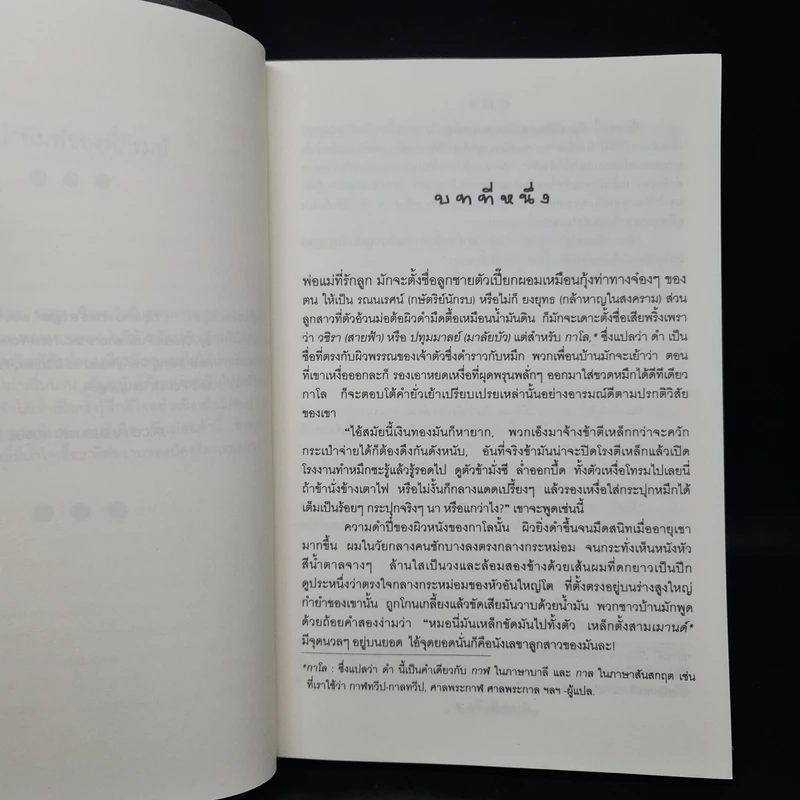 บทที่หนึ่ง
พ่อแม่ที่รักลูก มักจะตั้งชื่อลูกชายตัวเปี๊ยกผอมเหมือนกุ้งท่าทางจ๋องๆ ของ
ตน ให้เป็น รณนเรศน์ (กษัตริย์นักรบ) หรือไม่ก็ ยงยุทธ (กล้าหาญในสงคราม) ส่วน
ลูกสาวที่ตัวอ้วนม่อต้อผิวดำมืดตื้อเหมือนน้ำมันดิน ก็มักจะเดาะตั้งชื่อเสียพริ้งเพรา
ว่า วชิรา (สายฟ้า) หรือ ปทุมมาลย์ (มาลัยบัว) แต่สำหรับ กาโล,* ซึ่งแปลว่า ดำ เป็น
ชื่อที่ตรงกับผิวพรรณของเจ้าตัวซึ่งดำราวกับหมึก พวกเพื่อนบ้านมักจะเย้าว่า ตอน
ที่เขาเหงื่อออกละก็ รองเอาหยดเหงื่อที่ผุดพรุนพลั่กๆ ออกมาใส่ขวดหมึกได้ดีทีเดียว
กาโล ก็จะตอบโต้คำยั่วเย้าเปรียบเปรยเหล่านั้นอย่างอารมณ์ดีตามปรกติวิสัย
ของเขา
“ไอ้สมัยนี้เงินทองมันก็หายาก, พวกเอ็งมาจ้างข้าตีเหล็กกว่าจะควัก
กระเป๋าจ่ายได้ก็ต้องดึงกันดังหนับ, อันที่จริงข้ามันน่าจะปิดโรงตีเหล็กแล้วเปิด
โรงงานทำหมึกซะรู้แล้วรู้รอดไป ดูตัวข้ามั่งซี ล่ำออกปึ้ด ทั้งตัวเหงื่อโทรมไปเลยนี่
ถ้าข้านั่งข้างเตาไฟ หรือไม่งั้นก็กลางแดดเปรี้ยงๆ แล้วรองเหงื่อใส่กระปุกหมึกได้
เต็มเป็นร้อยๆ กระปุกจริงๆ นา หรือแกว่าไง?” เขาจะพูดเช่นนี้
ความดำปี๋ของผิวหนังของกาโลนั้น ผิวยิ่งดำขึ้นจนมืดสนิทเมื่ออายุเขา
มากขึ้น ผมในวัยกลางคนชักบางลงตรงกลางกระหม่อม จนกระทั่งเห็นหนังหัว
สีน้ำตาลจางๆ ล้านใสเป็นวงและล้อมสองข้างด้วยเส้นผมที่ดกยาวเป็นปีก
ดูประหนึ่งว่าตรงใจกลางกระหม่อมของหัวอันใหญ่โต ที่ตั้งตรงอยู่บนร่างสูงใหญ่
กำยำของเขานั้น ถูกโกนเกลี้ยงแล้วขัดเสียมันวาบด้วยน้ำมัน พวกชาวบ้านมักพูด
ด้วยถ้อยคำสองง่ามว่า “หมอนี่มันเหล็กขัดมันไปทั้งตัว เหล็กตั้งสามเมานด์*
มีจุดนวลๆ อยู่บนยอด ไอ้จุดยอดนั่นก็คือนังเลขาลูกสาวของมันละ!
*กาโล : ซึ่งแปลว่า ดำ นี้เป็นคำเดียวกับ กาฬ ในภาษาบาลี และ กาล ในภาษาสันสกฤต เช่น
ที่เราใช้ว่า กาฬทวีป-กาลทวีป, ศาลพระกาฬ ศาลพระกาล ฯลฯ -ผู้แปล.